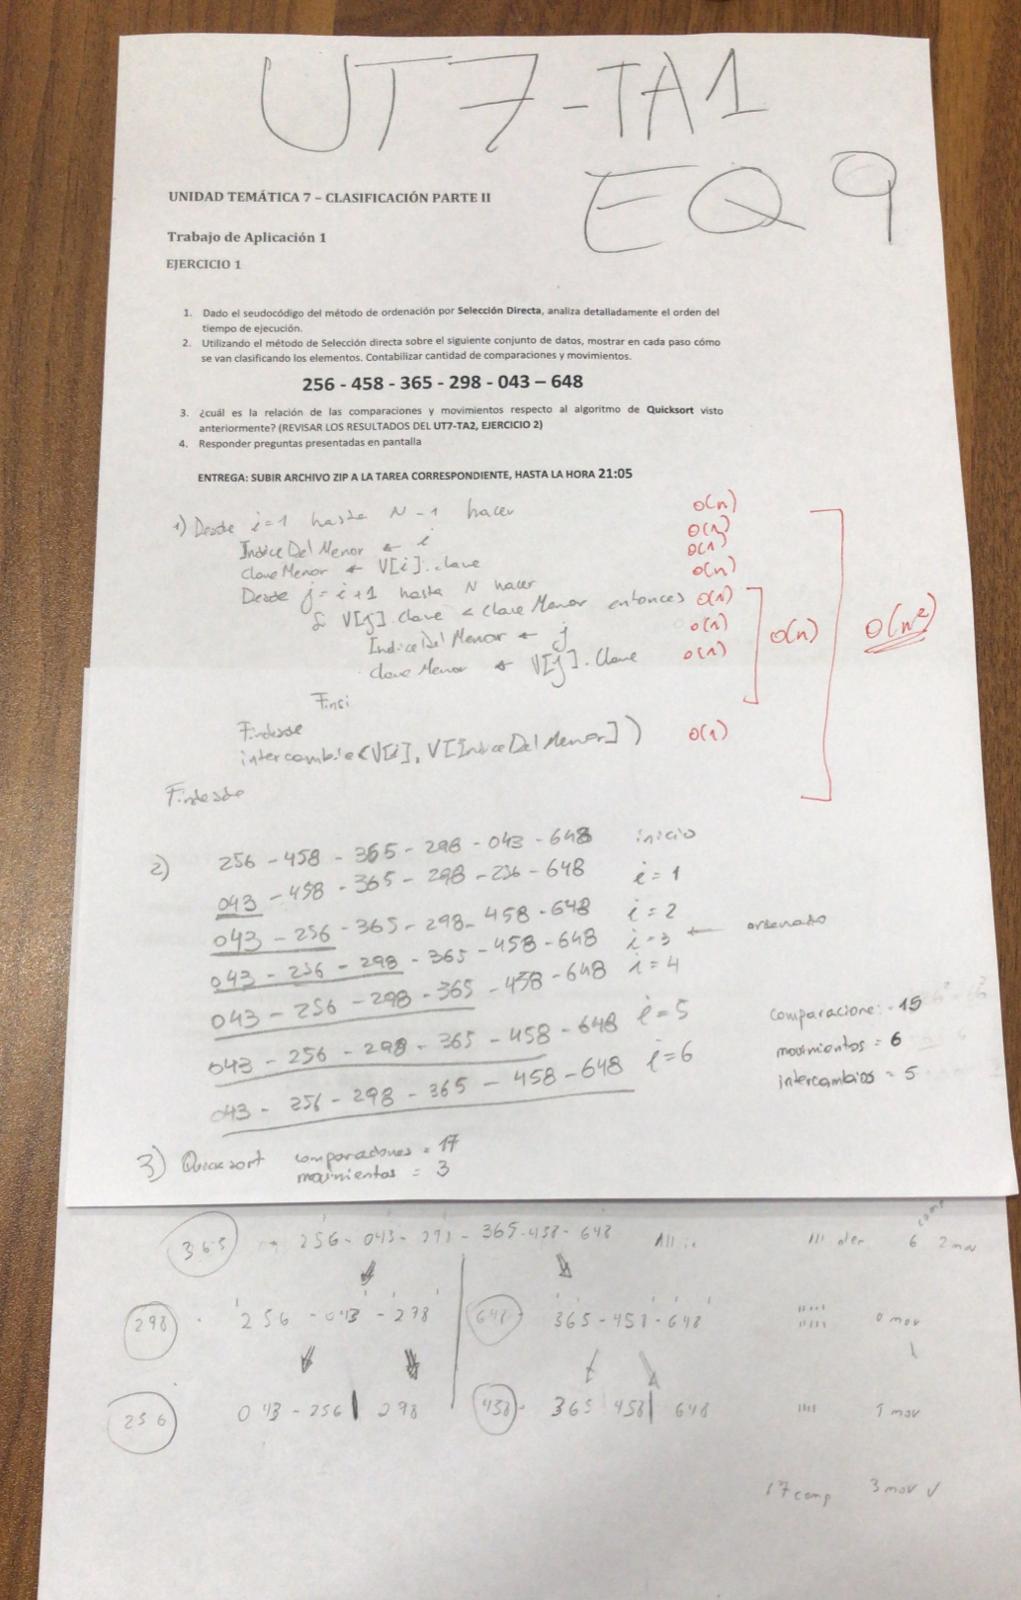 UT7-TA1
EQ 9
UNIDAD TEMÁTICA 7 – CLASIFICACIÓN PARTE II
Trabajo de Aplicación 1
EJERCICIO 1
1. Dado el seudocódigo del método de ordenación por Selección Directa, analiza detalladamente el orden del
tiempo de ejecución.
2. Utilizando el método de Selección directa sobre el siguiente conjunto de datos, mostrar en cada paso cómo
se van clasificando los elementos. Contabilizar cantidad de comparaciones y movimientos.
256 - 458 - 365 - 298 - 043 – 648
3. ¿cuál es la relación de las comparaciones y movimientos respecto al algoritmo de Quicksort visto
anteriormente? (REVISAR LOS RESULTADOS DEL UT7-TA2, EJERCICIO 2)
4. Responder preguntas presentadas en pantalla
ENTREGA: SUBIR ARCHIVO ZIP A LA TAREA CORRESPONDIENTE, HASTA LA HORA 21:05
1) Desde i=1 hasta N-1 hacer O(n)
IndiceDelMenor ← i O(1)
claveMenor ← V[i].clave O(1)
Desde j=i+1 hasta N hacer O(n)
Si V[j].clave < claveMenor entonces O(1)
IndiceDelMenor ← j O(1) O(n) O(n²)
claveMenor ← V[j].clave O(1)
Finsi
Findesde
intercambie(V[i], V[IndiceDelMenor]) O(1)
Findesde
2) 256 - 458 - 365 - 298 - 043 - 648 inicio
043 - 458 - 365 - 298 - 256 - 648 i=1
043 - 256 - 365 - 298 - 458 - 648 i=2
043 - 256 - 298 - 365 - 458 - 648 i=3 ← ordenado
043 - 256 - 298 - 365 - 458 - 648 i=4
043 - 256 - 298 - 365 - 458 - 648 i=5
043 - 256 - 298 - 365 - 458 - 648 i=6
comparacione: 15
movimientos = 6
intercambios = 5
3) Quicksort comparaciones = 17
movimientos = 3
365 → 256 - 043 - 298 - 365 - 458 - 648 III der 6 comp 2 mov
298 256 - 043 - 298 648 365 - 458 - 648 0 mov
256 043 - 256 | 298 458 365 458 | 648 IIII 1 mov
17 comp 3 mov ✓